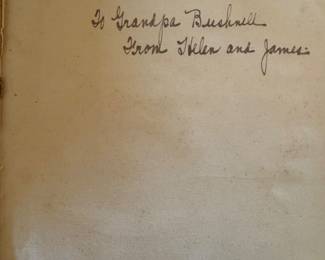 To Grandpa Bushnell
From Helen and James-